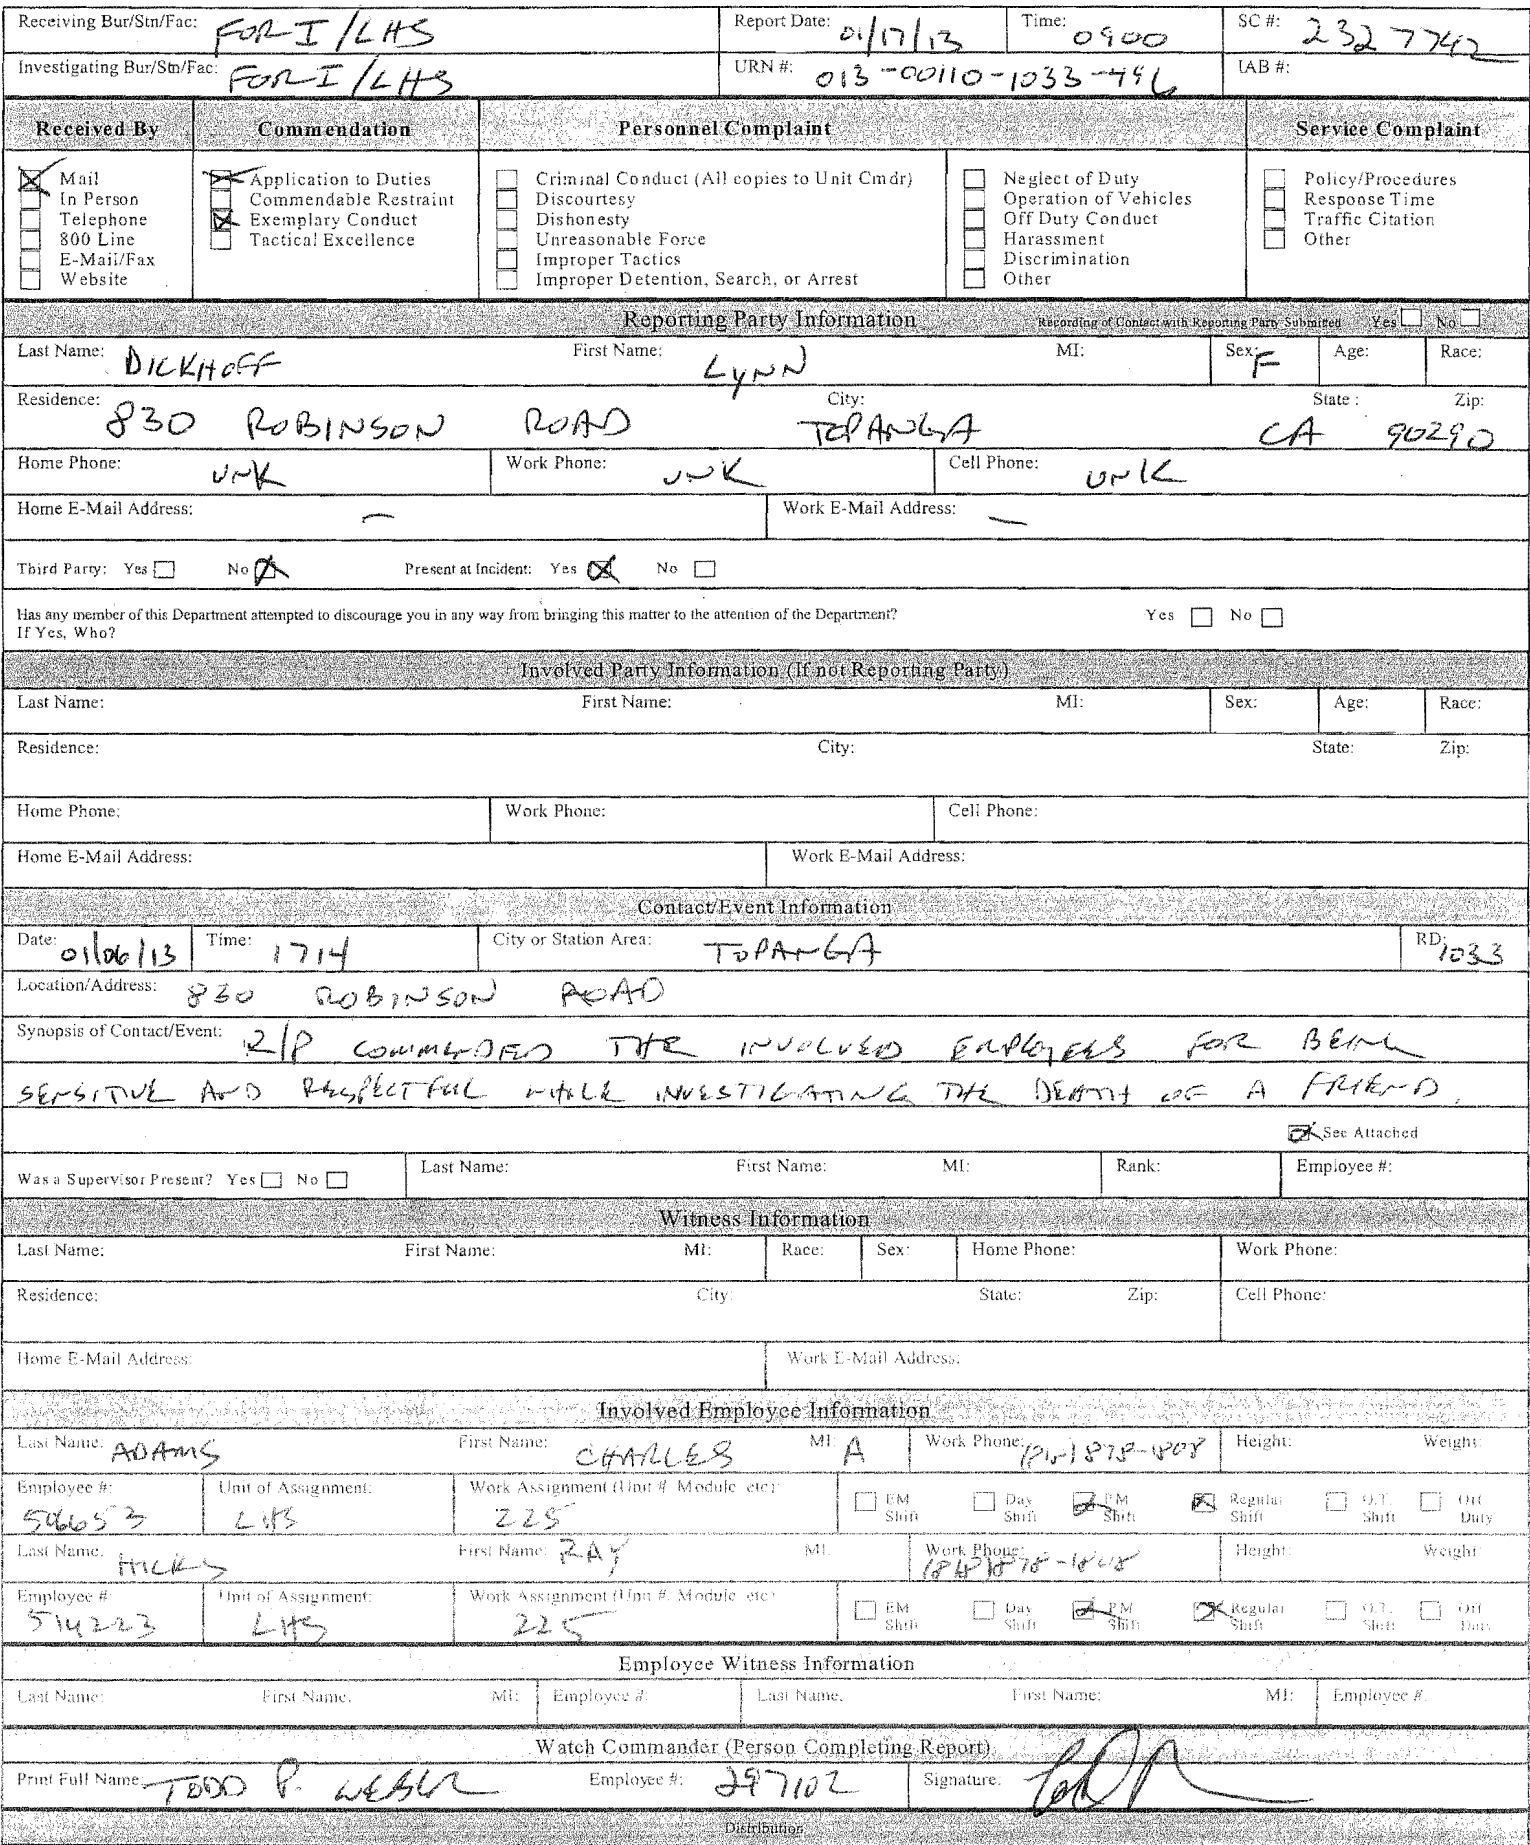 Receiving Bur/Stn/Fac: FOR I/LHS Report Date: 01/17/13 Time: 0900 SC #: 2327742
Investigating Bur/Stn/Fac: FOR I/LHS URN #: 013-00110-1033-496 IAB #:
Received By Commendation Personnel Complaint Service Complaint
Mail Application to Duties Criminal Conduct (All copies to Unit Cmdr) Neglect of Duty Policy/Procedures
In Person Commendable Restraint Discourtesy Operation of Vehicles Response Time
Telephone Exemplary Conduct Dishonesty Off Duty Conduct Traffic Citation
800 Line Tactical Excellence Unreasonable Force Harassment Other
E-Mail/Fax Improper Tactics Discrimination
Website Improper Detention, Search, or Arrest Other
Reporting Party Information Recording of Contact with Reporting Party Submitted Yes No
Last Name: DICKHOFF First Name: LYNN MI: Sex: F Age: Race:
Residence: 830 ROBINSON ROAD City: TOPANGA State: CA Zip: 90290
Home Phone: UNK Work Phone: UNK Cell Phone: UNK
Home E-Mail Address: — Work E-Mail Address: —
Third Party: Yes No Present at Incident: Yes No
Has any member of this Department attempted to discourage you in any way from bringing this matter to the attention of the Department? Yes No
If Yes, Who?
Involved Party Information (If not Reporting Party)
Last Name: First Name: MI: Sex: Age: Race:
Residence: City: State: Zip:
Home Phone: Work Phone: Cell Phone:
Home E-Mail Address: Work E-Mail Address:
Contact/Event Information
Date: 01/06/13 Time: 1714 City or Station Area: TOPANGA RD: 1033
Location/Address: 830 ROBINSON ROAD
Synopsis of Contact/Event: R/P COMMENDED THE INVOLVED EMPLOYEES FOR BEING
SENSITIVE AND RESPECTFUL WHILE INVESTIGATING THE DEATH OF A FRIEND.
See Attached
Was a Supervisor Present? Yes No Last Name: First Name: MI: Rank: Employee #:
Witness Information
Last Name: First Name: MI: Race: Sex: Home Phone: Work Phone:
Residence: City: State: Zip: Cell Phone:
Home E-Mail Address: Work E-Mail Address:
Involved Employee Information
Last Name: ADAMS First Name: CHARLES MI: A Work Phone: (818) 878-1808 Height: Weight:
Employee #: 506653 Unit of Assignment: LHS Work Assignment (Unit #, Module, etc): 225 EM Shift Day Shift PM Shift Regular Shift O.T. Shift Off Duty
Last Name: HICKS First Name: RAY MI: Work Phone: (818) 878-1808 Height: Weight:
Employee #: 514223 Unit of Assignment: LHS Work Assignment (Unit #, Module, etc): 225 EM Shift Day Shift PM Shift Regular Shift O.T. Shift Off Duty
Employee Witness Information
Last Name: First Name: MI: Employee #: Last Name: First Name: MI: Employee #:
Watch Commander (Person Completing Report)
Print Full Name: TODD P. WEBER Employee #: 297102 Signature:
Distribution